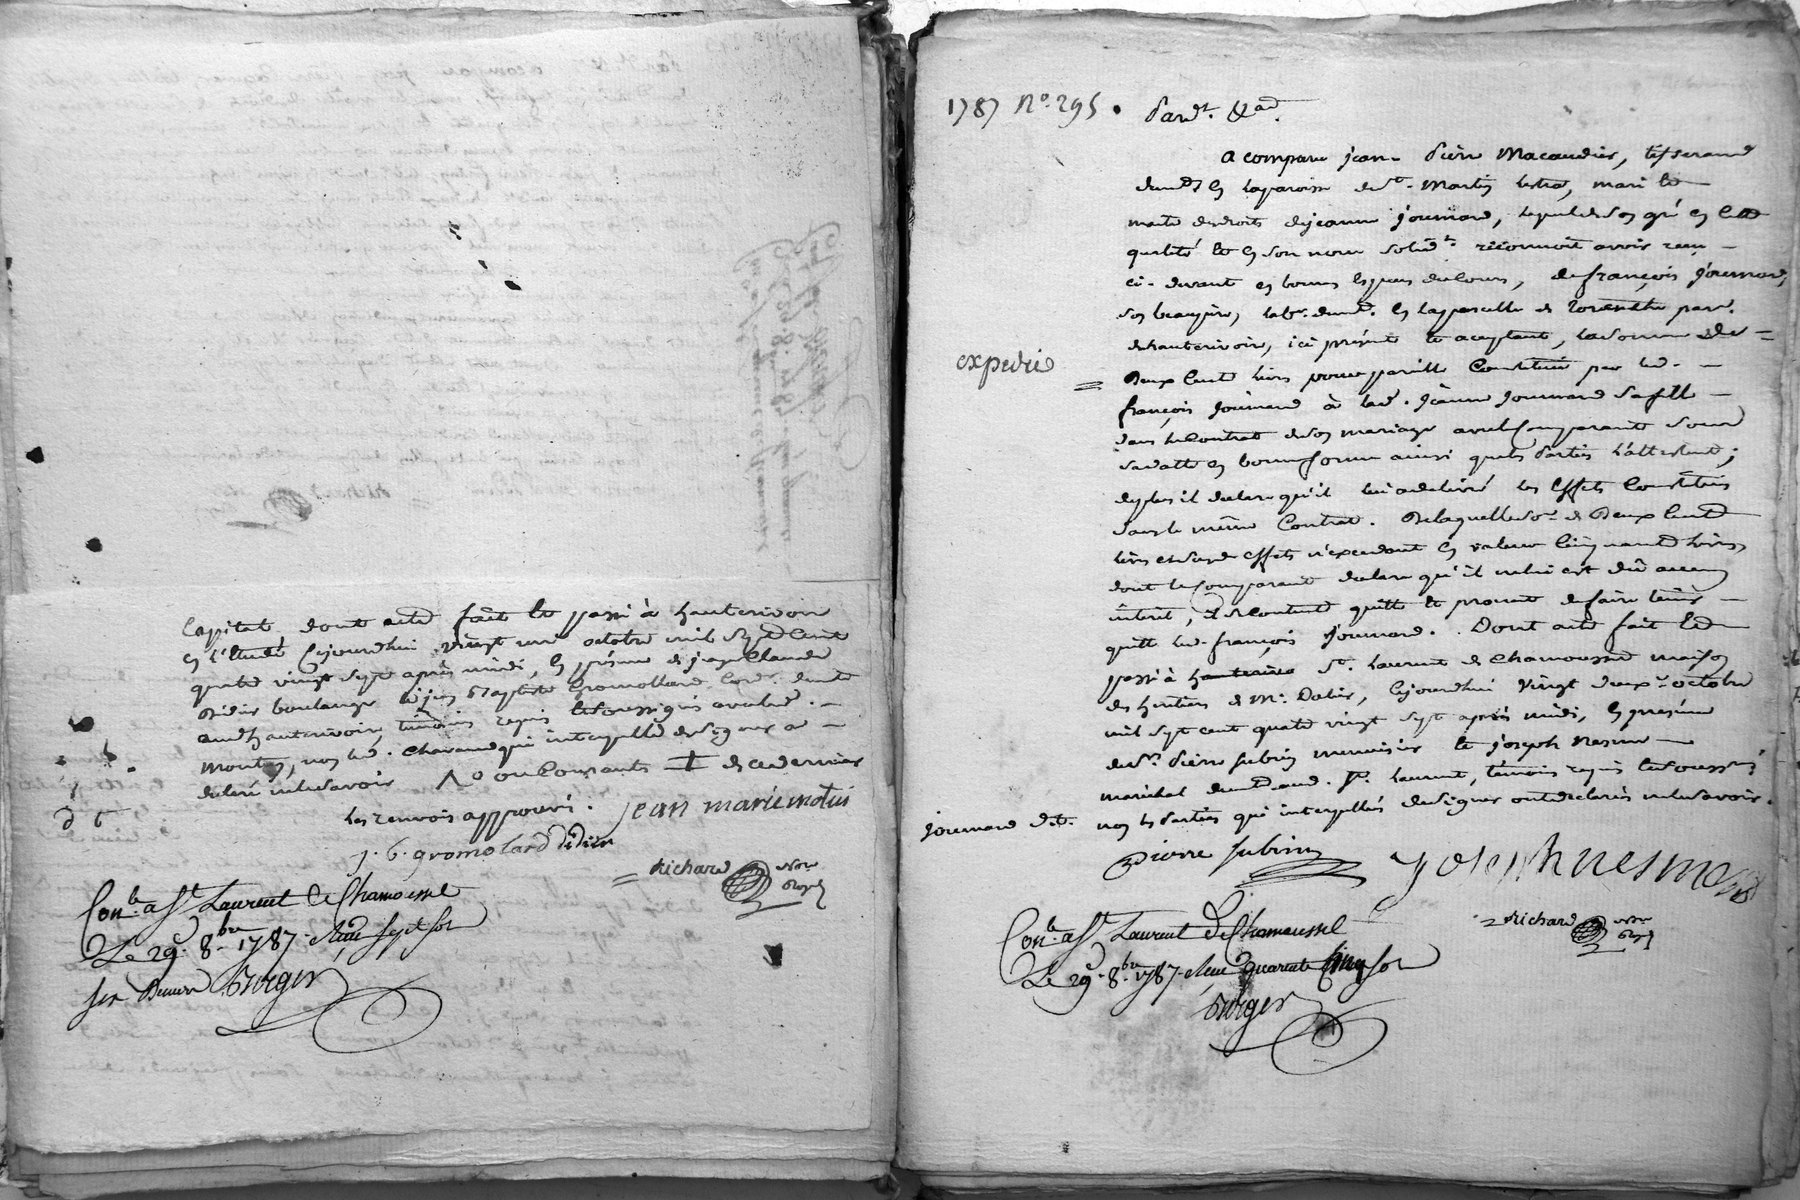 Capital, dont acte fait et passé à hauterivoire
en l'Etude Cejourdhui vingt un octobre mil sept cent
quatre vingt sept après midi, en présence de
Didier boulanger et jean Baptiste Gromollard
aud hauterivoire, témoins requis et soussignés avec led. –
Montes, non led. Chavane qui interpellé de signer a –
déclaré ne le savoir
les renvois approuvés.
jean marie
j. b. gromolard didier
Richard Nore Royal
Con.le a St. Laurent de Chamousset
Le 29e. 8bre 1787. Reçu sept sol
six Deniers Borger
1787 No. 295.
Pard.t &a.
a comparu jean-Pierre Macaudier, tisserand
demt en la paroisse de St. Martin lestra, mari et
maitre des droits de jeanne joumard, lequel de son gré en cette
qualité et en son nom solid.t reconnoit avoir reçu –
ci-devant en bonnes Especes de Cours, de françois joumard,
son beaupère, lab. demt. en la parcelle de Zorenthe par.
de hauterivoire, ici présent et acceptant, la somme de –
expedié
Deux Cent livres pour pareille Constituée par led. –
françois joumard à lad. jeanne joumard sa fille –
dans le Contrat de son mariage avec le Comparant sous
sa datte en bonne forme ainsi que les Parties l'attestent;
de plus il declare qu'il lui a delivré les Effets Constitués
dans le même Contrat. De laquelle so.e de Deux Cent
livres et desd. effets n'excedant en valeur Cinquante livres
dont le Comparant declare qu'il ne lui est dû aucun
interet, il se Contente quitte et promet de faire tenir –
quitte led. françois joumard. Dont acte fait et
passé à St. Laurent de Chamousset maison
des heritiers de Mr. Dalis, Cejourdhui vingt deux.e octobre
mil sept cent quatre vingt sept après midi, en presence
de Sr. Pierre Subrin menuisier et joseph Nesme –
maréchal demt aud. St. Laurent, témoins requis et soussignés
joumard d.t. non les Parties qui interpellées de signer ont declaré ne le savoir.
Pierre Subrin joseph nesme
Richard Nore Royal
Con.le a St. Laurent de Chamousset
Le 29e. 8bre 1787. Reçu quarante cinq sol
Borger